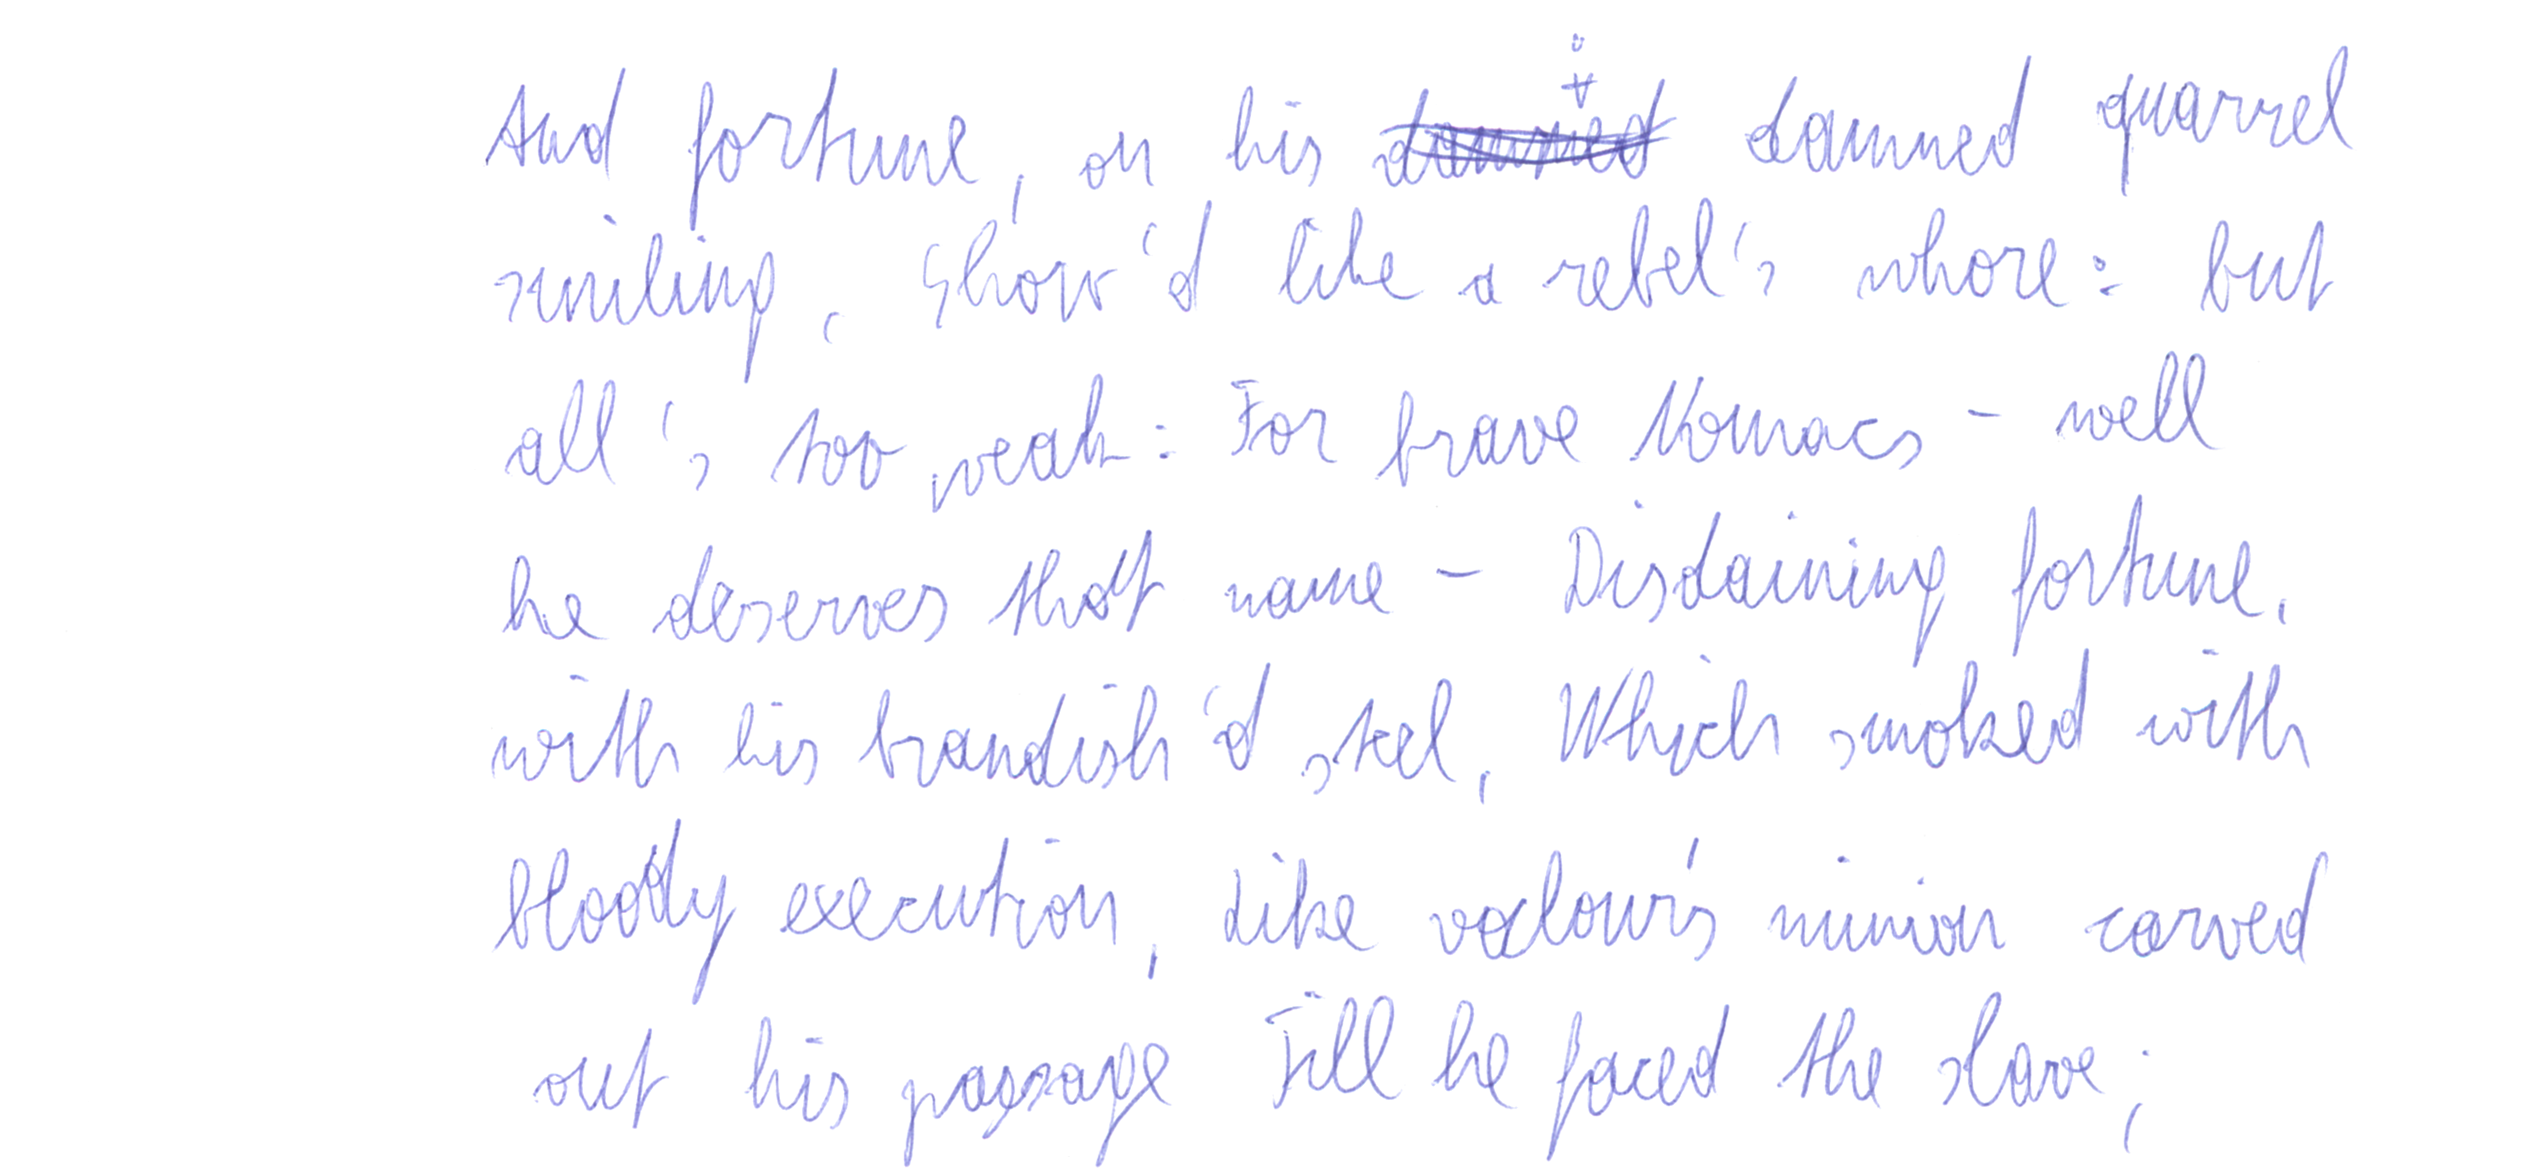 And fortune, on his damned quarrel
smiling, Show'd like a rebel's whore: but
all's too weak: For brave Komacs - well
he deserves that name - Disdaining fortune,
with his brandish'd steel, Which smoked with
bloody execution, Like valour's minion carved
out his passage Till he faced the slave;